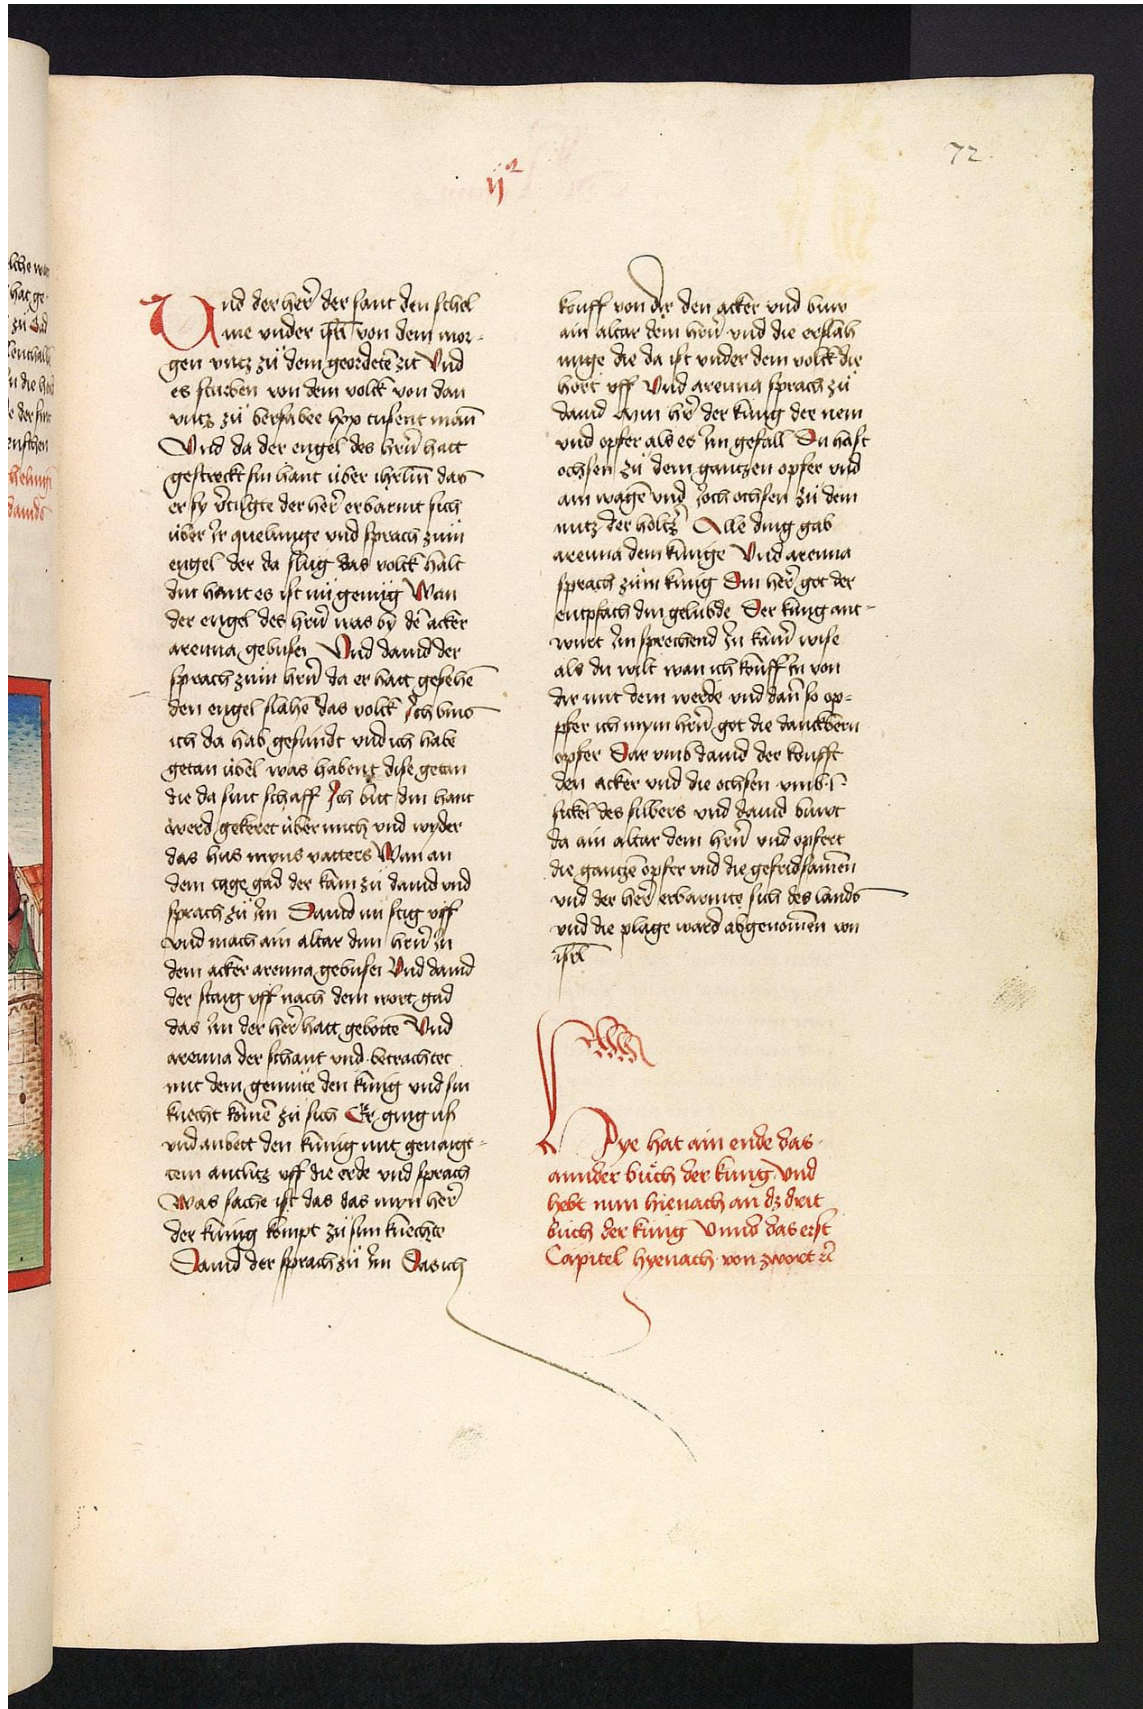 72
ij
Und der her̃ der sant den schel
me under isrl̃ von dem mor-
gen untz zů dem geordetẽ zit Und
es sturben von dem volck von dan
untz zů bersabee lxx tusent man̄
Und da der engel des hrn̄ hatt
gestreckt sin hant über ihrlm̄ das
er sy v̓tilgte der her̃ erbarmt sich
über ir quelunge und sprach zům
engel der da slůg das volck halt
din hant es ist nu genůg Wan
der engel des hrn̄ was by dẽ acker
areuna gebusei Und dauid der
sprach zům hrn̄ da er hatt gesehẽ
den engel slahẽ das volck Ich bins
ich da hab gesundt und ich habe
getan übel was habent dise getan
die da sint schaff Ich bitt din hant
werd gekeret über mich und wyder
das hus myns vatters Wan an
dem tage gad der kam zů dauid und
sprach zů im Dauid nu stig uff
und mach ain altar dim hrn̄ in
dem acker areuna gebusei Und dauid
der staig uff nach dem wort gad
das im der her̃ hatt gebottẽ Und
areuna der schaut und betrachtet
mit dem gemůte den kung und sin
knecht komẽ zů sich Er ging us
und anbett den kunig mit genaigt-
tem antlitz uff die erde und sprach
Was sache ist das das myn her̃
der kunig kompt zů sim knechte
Dauid der sprach zů im Das ich
kouff von dir den acker und buw
ain altar dem hrn̄ und die erslah
unge die da ist under dem volck die
hőrt uff Und areuna sprach zů
dauid Myn her̃ der kung der nem
und opfer als es im gefall Du hast
ochsen zů dem gantzen opfer und
ain wagẽ und joch ochsen zů dem
nutz der holtz̓ Alle ding gab
areuna dem kunige Und areuna
sprach zům kunig Din her̃ got der
entpfach din gelubde Der kung ant-
wurt im sprechend In kainr̃ wise
als du wilt wan ich kouff in von
dir mit dem werde und dan̄ so op-
pfer ich mym hrn̄ got die danckbern
opfer Dar umb dauid der koufft
den acker und die ochsen umb ·l·
sickel des silbers und dauid buwt
da ain altar dem hrn̄ und opfert
die gantzẽ opfer und die gefridsamen
und der her̃ erbarmte sich des lands
und die plage ward abgenomen von
isrl̃
Hye hat ain ende das
annder bůch der kung Und
hebt nun hienach an dz drit
bůch der kung Unnd das erst
Capitel hyenach von wort zů